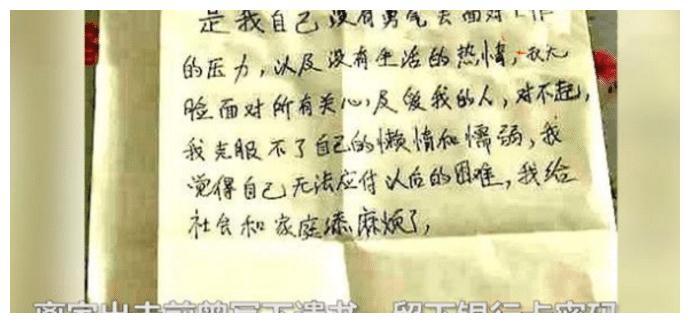 是我自己没有勇气去面对工作
的压力，以及没有生活的热情，我无
脸面对所有关心，及爱我的人，对不起，
我克服不了自己的懒惰和懦弱，我
觉得自己无法应付以后的困难，我给
社会和家庭添麻烦了，
离家出走前曾写下遗书，留下银行卡密码